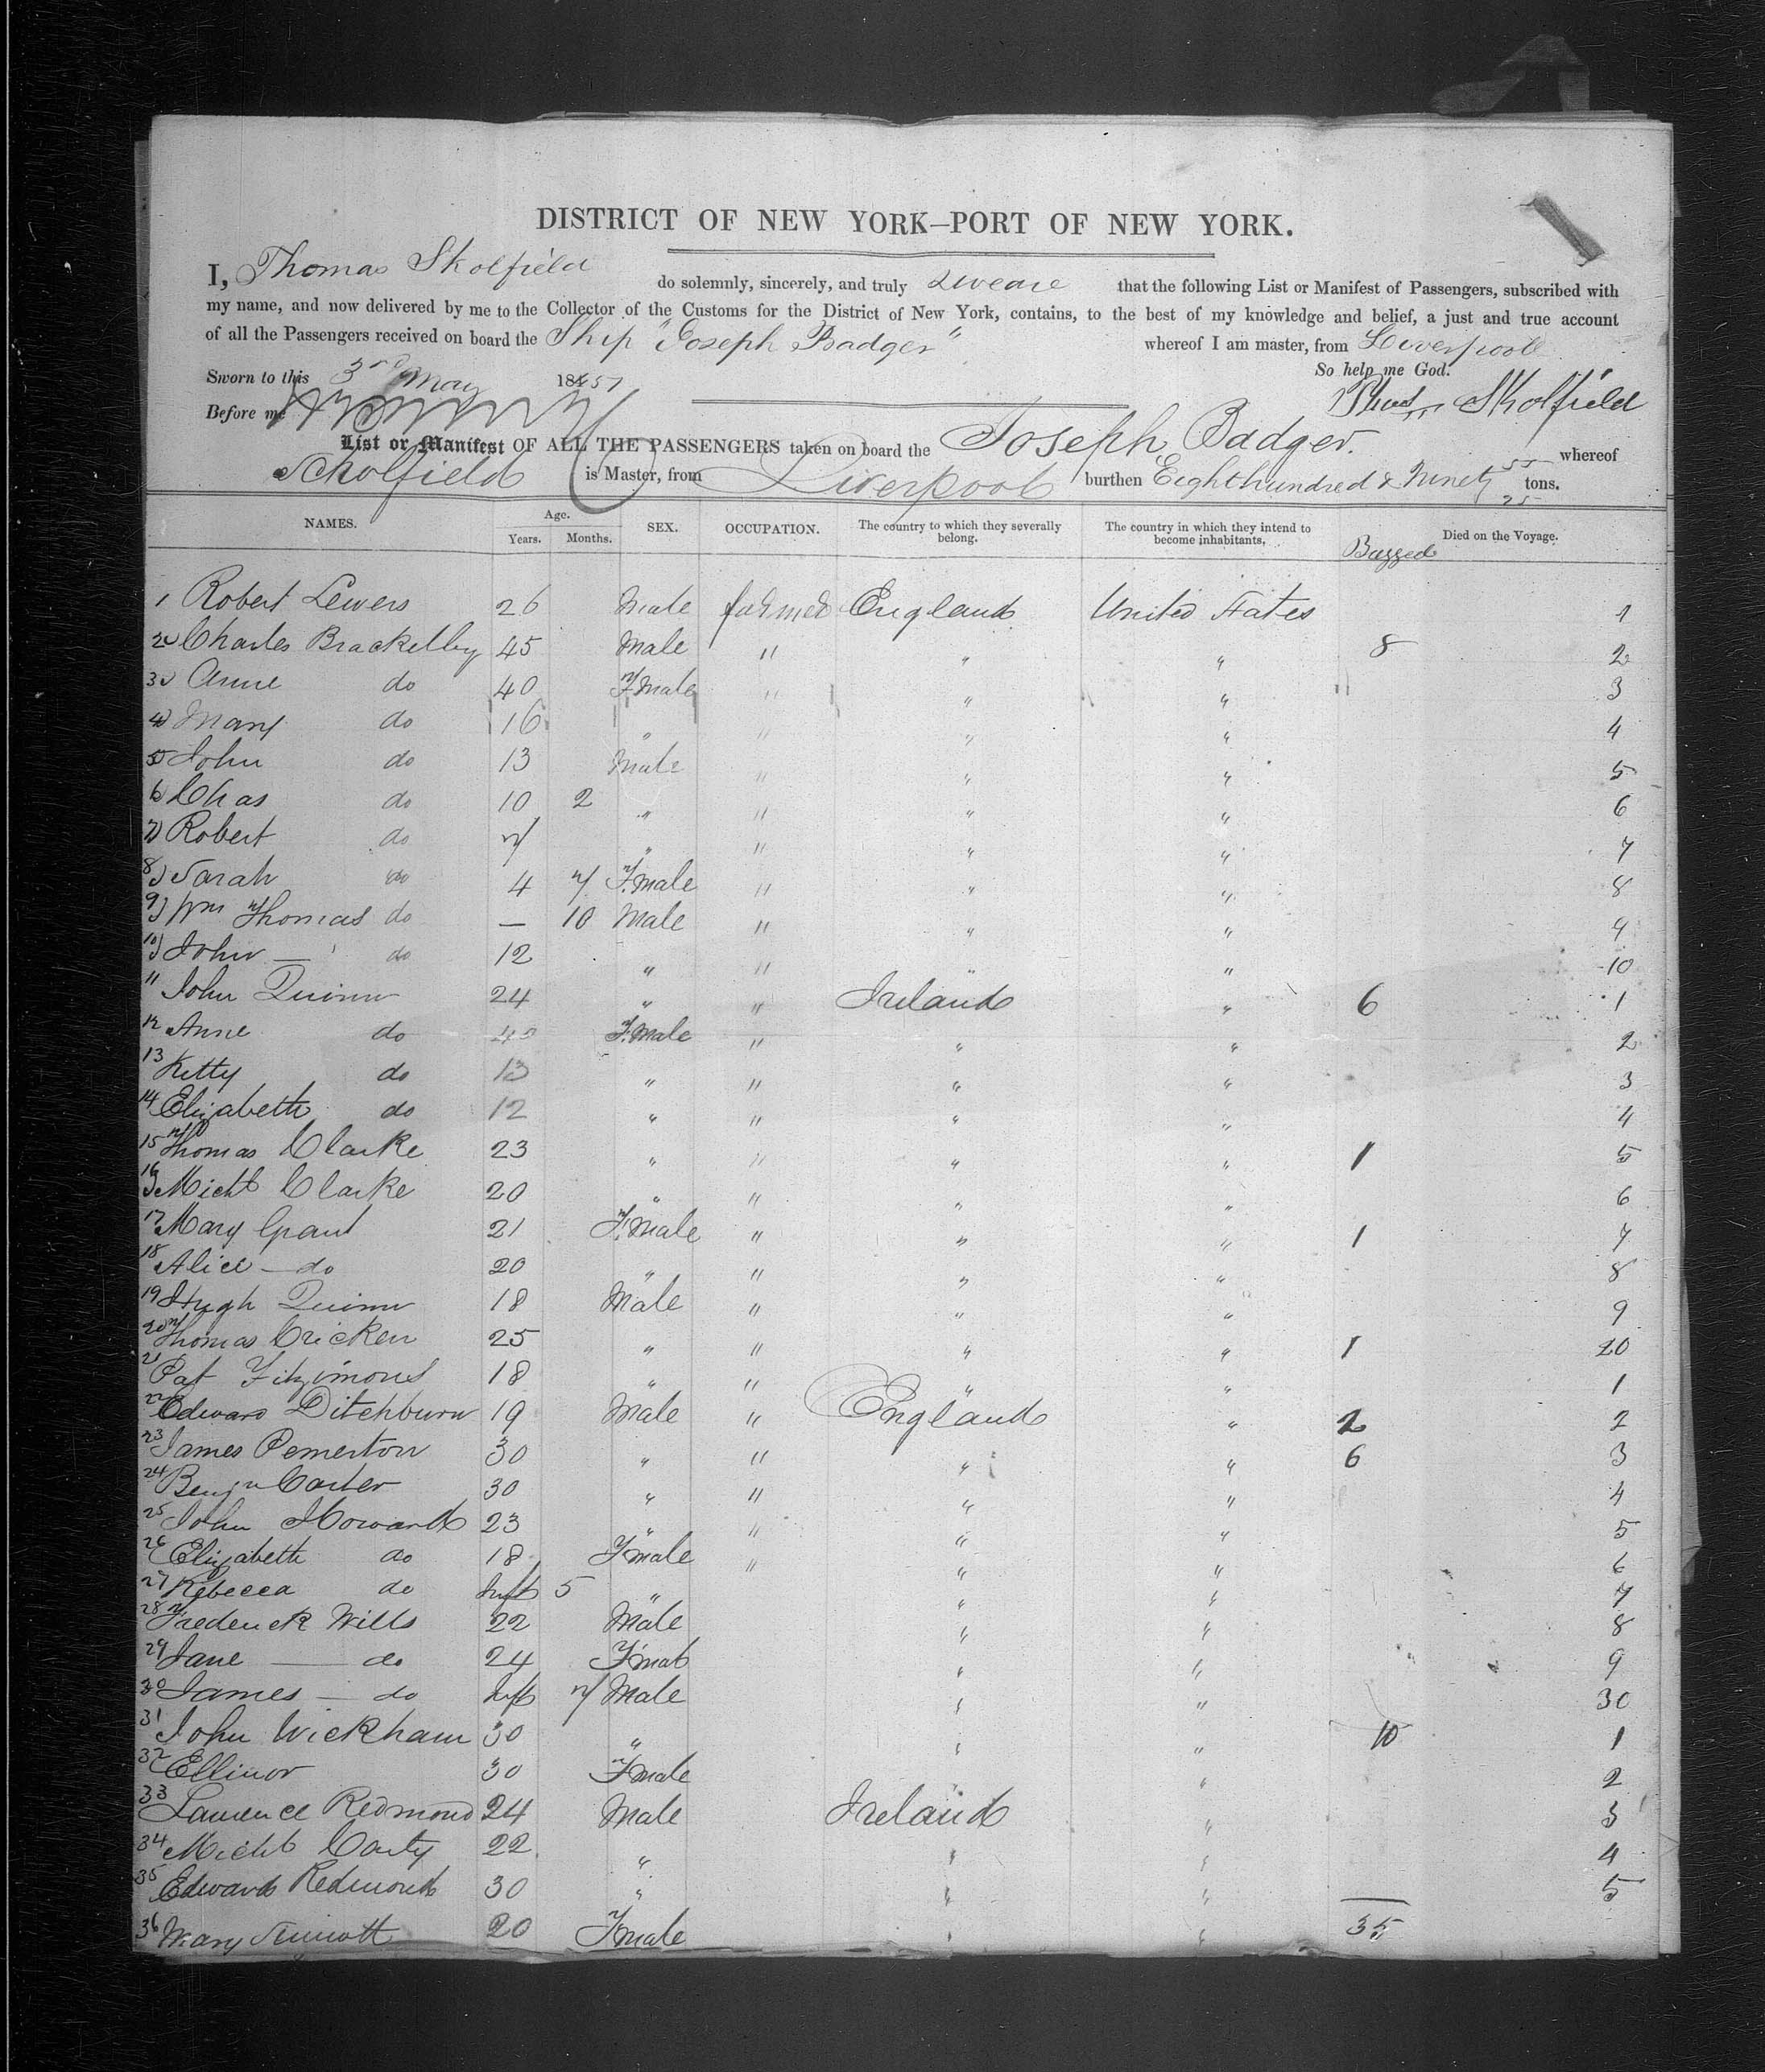 DISTRICT OF NEW YORK—PORT OF NEW YORK.
I, Thomas Skolfield do solemnly, sincerely, and truly sweare that the following List or Manifest of Passengers, subscribed with
my name, and now delivered by me to the Collector of the Customs for the District of New York, contains, to the best of my knowledge and belief, a just and true account
of all the Passengers received on board the Ship "Joseph Badger" whereof I am master, from Liverpool
So help me God.
Sworn to this 3rd May 1851
Thos Skolfield
Before me
List or Manifest OF ALL THE PASSENGERS taken on board the Joseph Badger. whereof
Scholfield is Master, from Liverpool burthen Eighthundred & Ninety 55 tons.
25
NAMES. Age. Years. Months. SEX. OCCUPATION. The country to which they severally belong. The country in which they intend to become inhabitants. Bagged Died on the Voyage.
1 Robert Lewers 26 Male farmer England United States 1
2 Charles Brackelby 45 Male " " " 8 2
3 Anne do 40 Female " " " 3
4 Mary do 16 " " " " 4
5 John do 13 Male " " " 5
6 Chas do 10 2 " " " " 6
7 Robert do 7 " " " " 7
8 Sarah do 4 7 Female " " " 8
9 Wm Thomas do — 10 Male " " " 9
10 John — do 12 " " " " 10
11 John Quinn 24 " " Ireland " 6 1
12 Anne do 45 Female " " " 2
13 Kitty do 13 " " " " 3
14 Elizabeth do 12 " " " " 4
15 Thomas Clarke 23 " " " " 1 5
16 Michl Clarke 20 " " " " 6
17 Mary Grant 21 Female " " " 1 7
18 Alice — do 20 " " " " 8
19 Hugh Quinn 18 Male " " " 9
20 Thomas Cricken 25 " " " " 1 20
21 Pat Fitzimons 18 " " " " 1
22 Edward Ditchburn 19 Male " England " 2 2
23 James Pemerton 30 " " " " 6 3
24 Benjn Carter 30 " " " " 4
25 John Howard 23 " " " " 5
26 Elizabeth do 18 Female " " " 6
27 Rebecca do Inft 5 " " " 7
28 Frederick Wills 22 Male " " 8
29 Jane — do 24 Femal " " 9
30 James — do Inft 7 Male " " 30
31 John Wickham 30 " " " 10 1
32 Ellinor 30 Female " 2
33 Laurence Redmond 24 Male Ireland " 3
34 Michl Carty 22 " " " 4
35 Edward Redmond 30 " " " 5
36 Mary Sinnott 20 Female " " 35